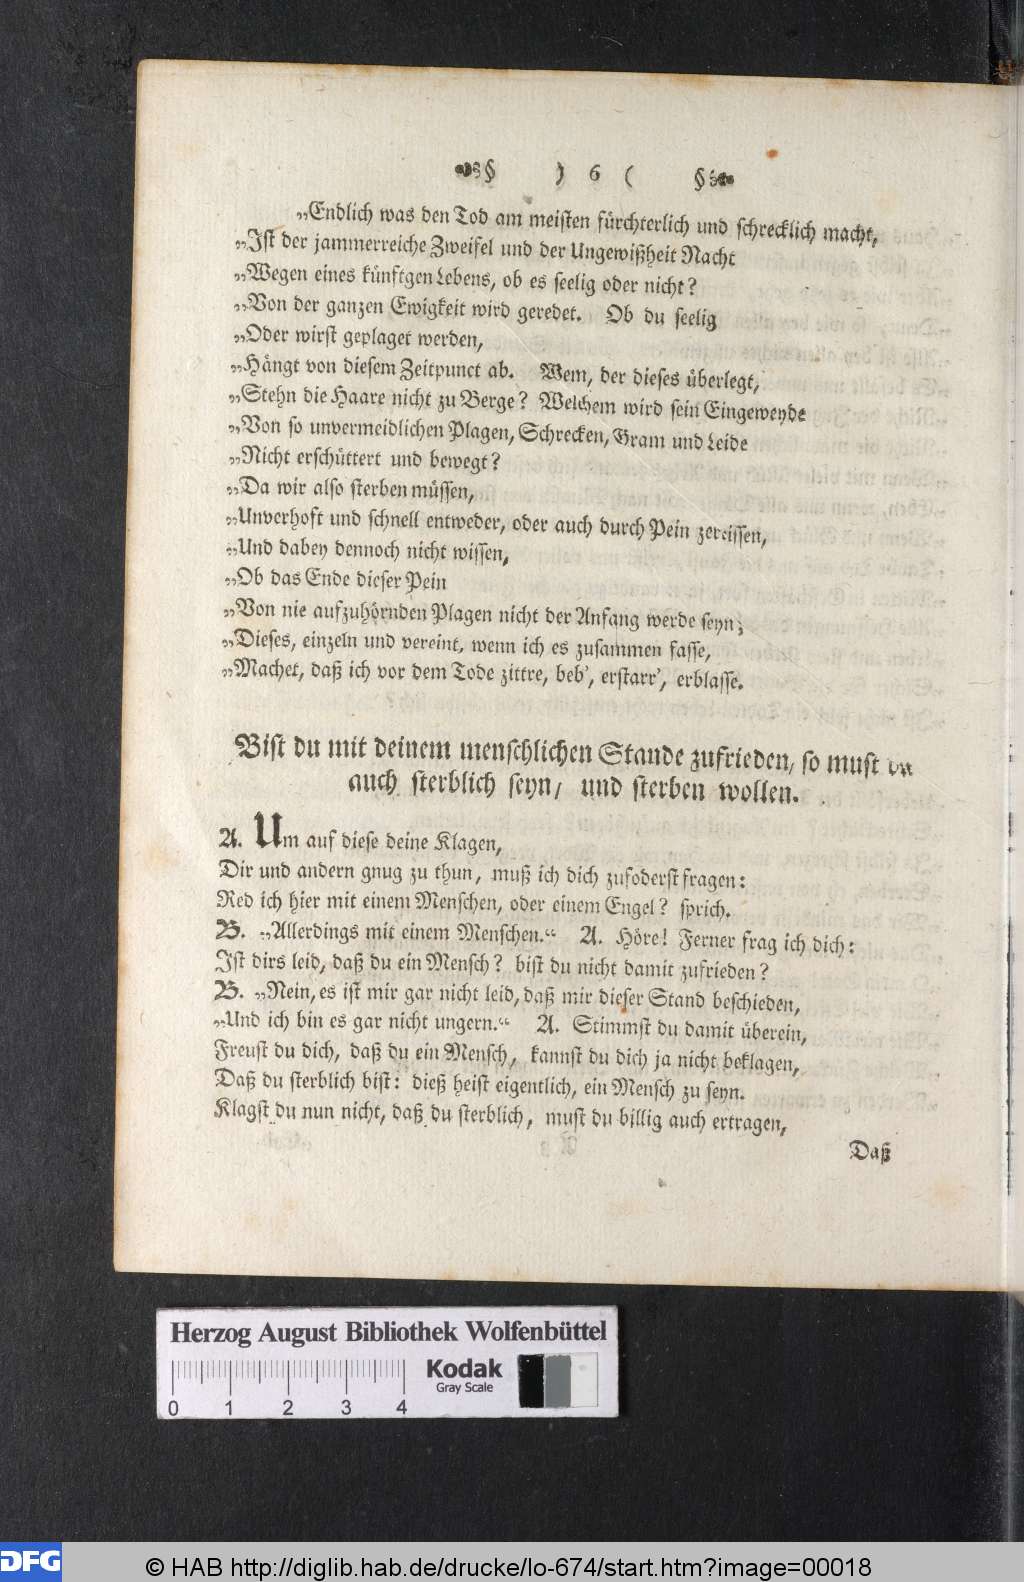 ) 6 (
„Endlich was den Tod am meisten fürchterlich und schrecklich macht,
„Ist der jammerreiche Zweifel und der Ungewißheit Nacht
„Wegen eines künftgen Lebens, ob es seelig oder nicht?
„Von der ganzen Ewigkeit wird geredet. Ob du seelig
„Oder wirst geplaget werden,
„Hängt von diesem Zeitpunct ab. Wem, der dieses überlegt,
„Stehn die Haare nicht zu Berge? Welchem wird sein Eingeweyde
„Von so unvermeidlichen Plagen, Schrecken, Gram und Leide
„Nicht erschüttert und bewegt?
„Da wir also sterben müssen,
„Unverhoft und schnell entweder, oder auch durch Pein zereissen,
„Und dabey dennoch nicht wissen,
„Ob das Ende dieser Pein
„Von nie aufzuhörnden Plagen nicht der Anfang werde seyn;
„Dieses, einzeln und vereint, wenn ich es zusammen fasse,
„Machet, daß ich vor dem Tode zittre, beb', erstarr', erblasse.
Bist du mit deinem menschlichen Stande zufrieden, so must du
auch sterblich seyn, und sterben wollen.
A. Um auf diese deine Klagen,
Dir und andern gnug zu thun, muß ich dich zufoderst fragen:
Red ich hier mit einem Menschen, oder einem Engel? sprich.
B. „Allerdings mit einem Menschen.“ A. Höre! Ferner frag ich dich:
Ist dirs leid, daß du ein Mensch? bist du nicht damit zufrieden?
B. „Nein, es ist mir gar nicht leid, daß mir dieser Stand beschieden,
„Und ich bin es gar nicht ungern.“ A. Stimmst du damit überein,
Freust du dich, daß du ein Mensch, kannst du dich ja nicht beklagen,
Daß du sterblich bist: dieß heist eigentlich, ein Mensch zu seyn.
Klagst du nun nicht, daß du sterblich, must du billig auch ertragen,
Daß
Herzog August Bibliothek Wolfenbüttel
Kodak
Gray Scale
0 1 2 3 4
DFG
© HAB http://diglib.hab.de/drucke/lo-674/start.htm?image=00018